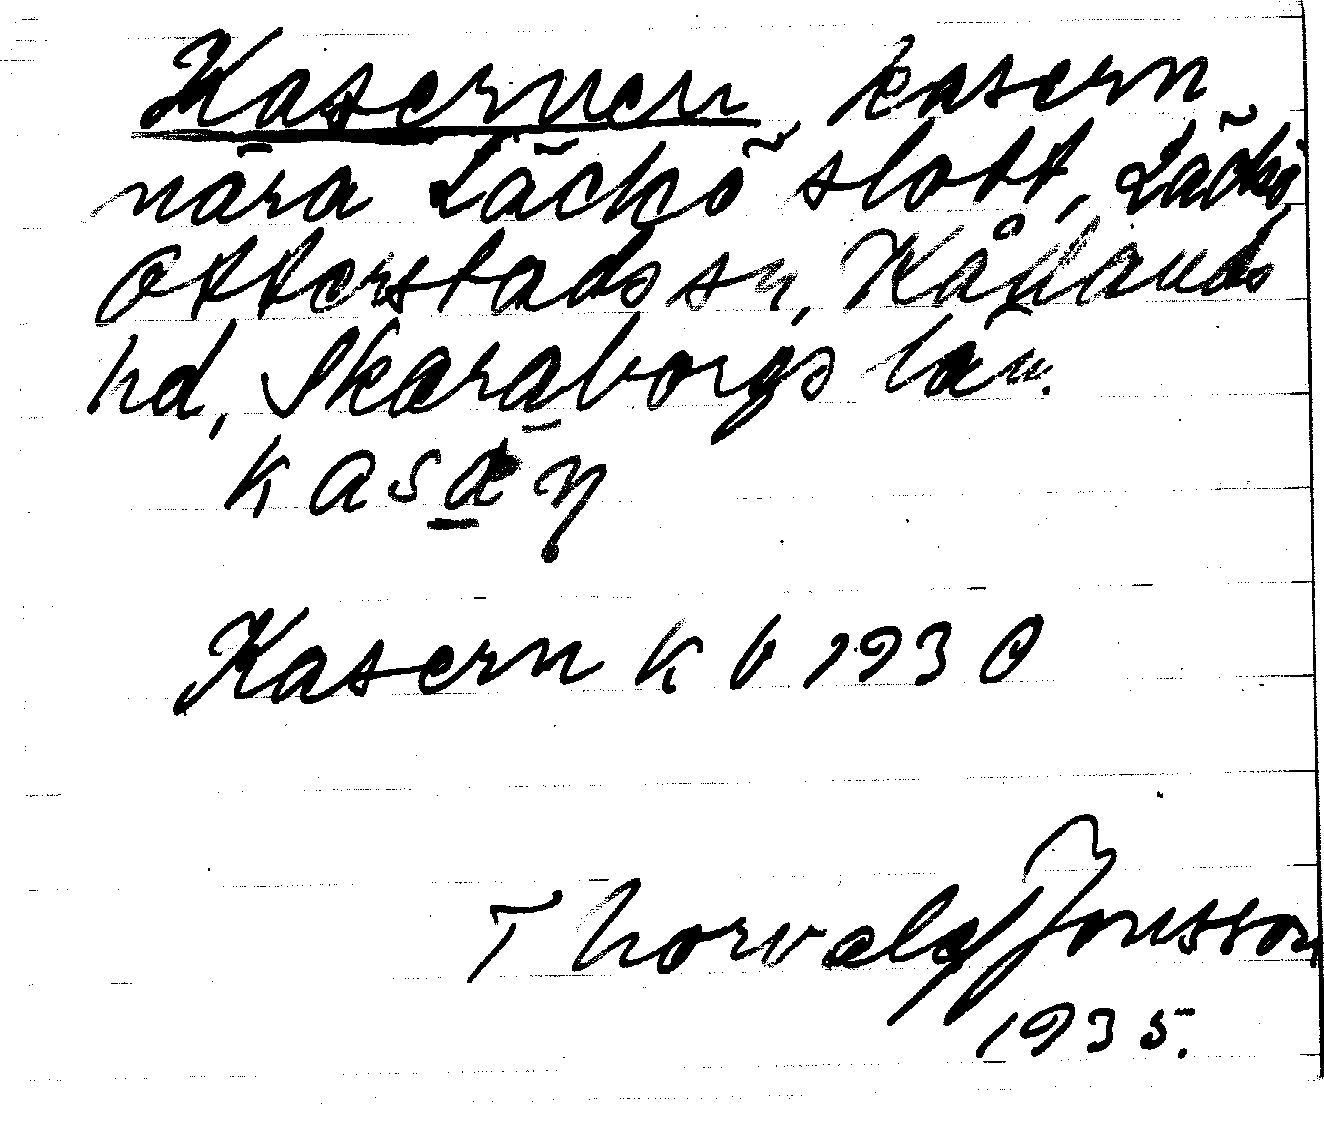 Kasernen, kasern
nära Läckö slott, Läckö,
Otterstads sn, Kållands
hd, Skaraborgs län.
kasǣ̠ṇ
Kasern k b 1930
Thorvald Jonsson
1935.